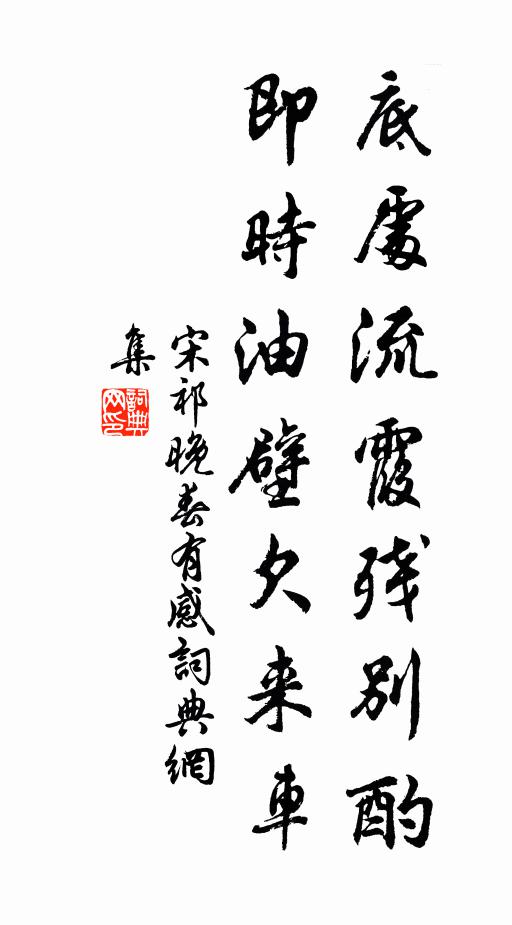 底處流霞残別酌
即時油壁欠来車
宋祁晚春有感詞典網
集
詞典
网印